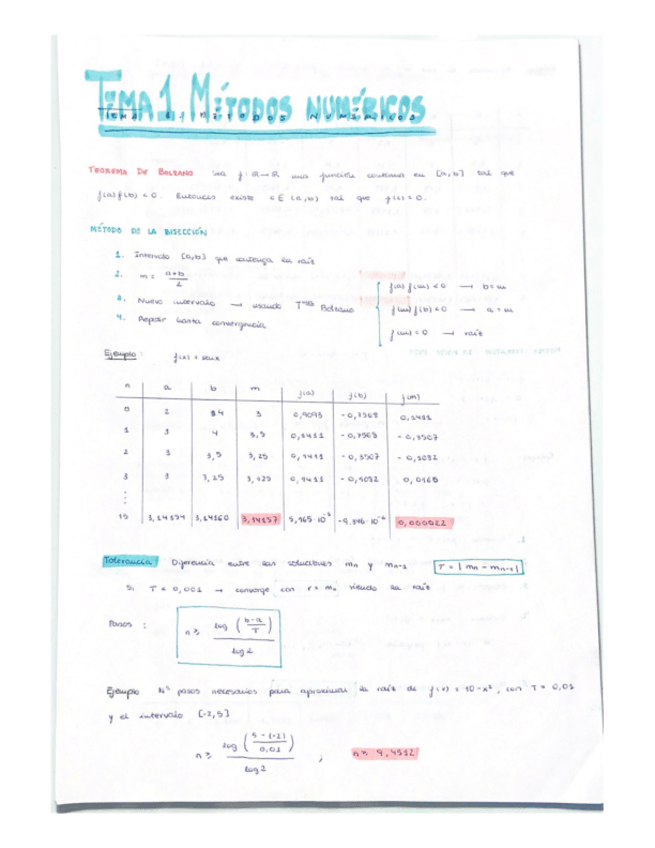 TEMA 1. MÉTODOS NUMÉRICOS
TEOREMA DE BOLZANO Sea f: R → R una función continua en [a,b] tal que
f(a) f(b) < 0. Entonces existe c ∈ (a,b) tal que f(c) = 0.
MÉTODO DE LA BISECCIÓN
1. Intervalo [a,b] que contenga la raíz
2. m = a+b / 2
3. Nuevo intervalo → usando Tma Bolzano
4. Repetir hasta convergencia
f(a) f(m) < 0 → b = m
f(m) f(b) < 0 → a = m
f(m) = 0 → raíz
Ejemplo: f(x) = senx
n a b m f(a) f(b) f(m)
0 2 4 3 0,9093 -0,7568 0,1411
1 3 4 3,5 0,1411 -0,7568 -0,3507
2 3 3,5 3,25 0,1411 -0,3507 -0,1082
3 3 3,25 3,125 0,1411 -0,1082 0,0165
⋮
15 3,14154 3,14160 3,14157 0,000022
Tolerancia Diferencia entre las soluciones mn y mn-1 T = | mn - mn-1 |
Si T < 0,001 → converge con r = mn siendo la raíz
Pasos : n ≥ log ( b-a / T ) / log 2
Ejemplo Nº pasos necesarios para aproximar la raíz de f(x) = 10 - x², con T = 0,01
y el intervalo [-2,5]
n ≥ log ( 5 - (-2) / 0,01 ) / log 2 ; n ≥ 9,4512